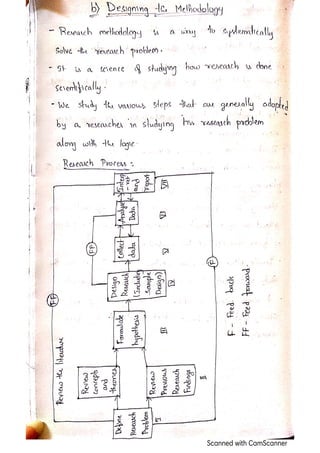 b) Designing the Methodology
- Research methodology is a way to systematically
Solve the research problem.
- It is a science of studying how research is done
Scientifically.
- We study the various steps that are generally adopted
by a researcher in studying his research problem
along with the logic
Research Process :
Review the literature
FF
FF
Define
Research
Problem
I
Review
Concepts
and
theories
Review
Previous
Research
Findings
II
Formulate
hypothesis
III
Design
Research
(Include
Sample
Design)
IV
Collect
data
V
Analyse
Data
VI
Inter
- ret
and
report
VII
F
F - Feed back
FF - Feed forward.
Scanned with CamScanner